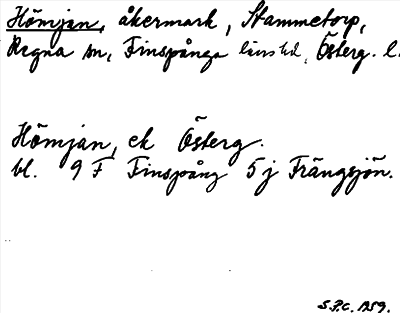 Hömjan, åkermark, Stammetorp,
Regna sn, Finspånga länsbd, Österg. l.
Hömjan, ek Österg.
bl. 9 F Finspång 5 j Frängsjön.
S.P.C. 1959.